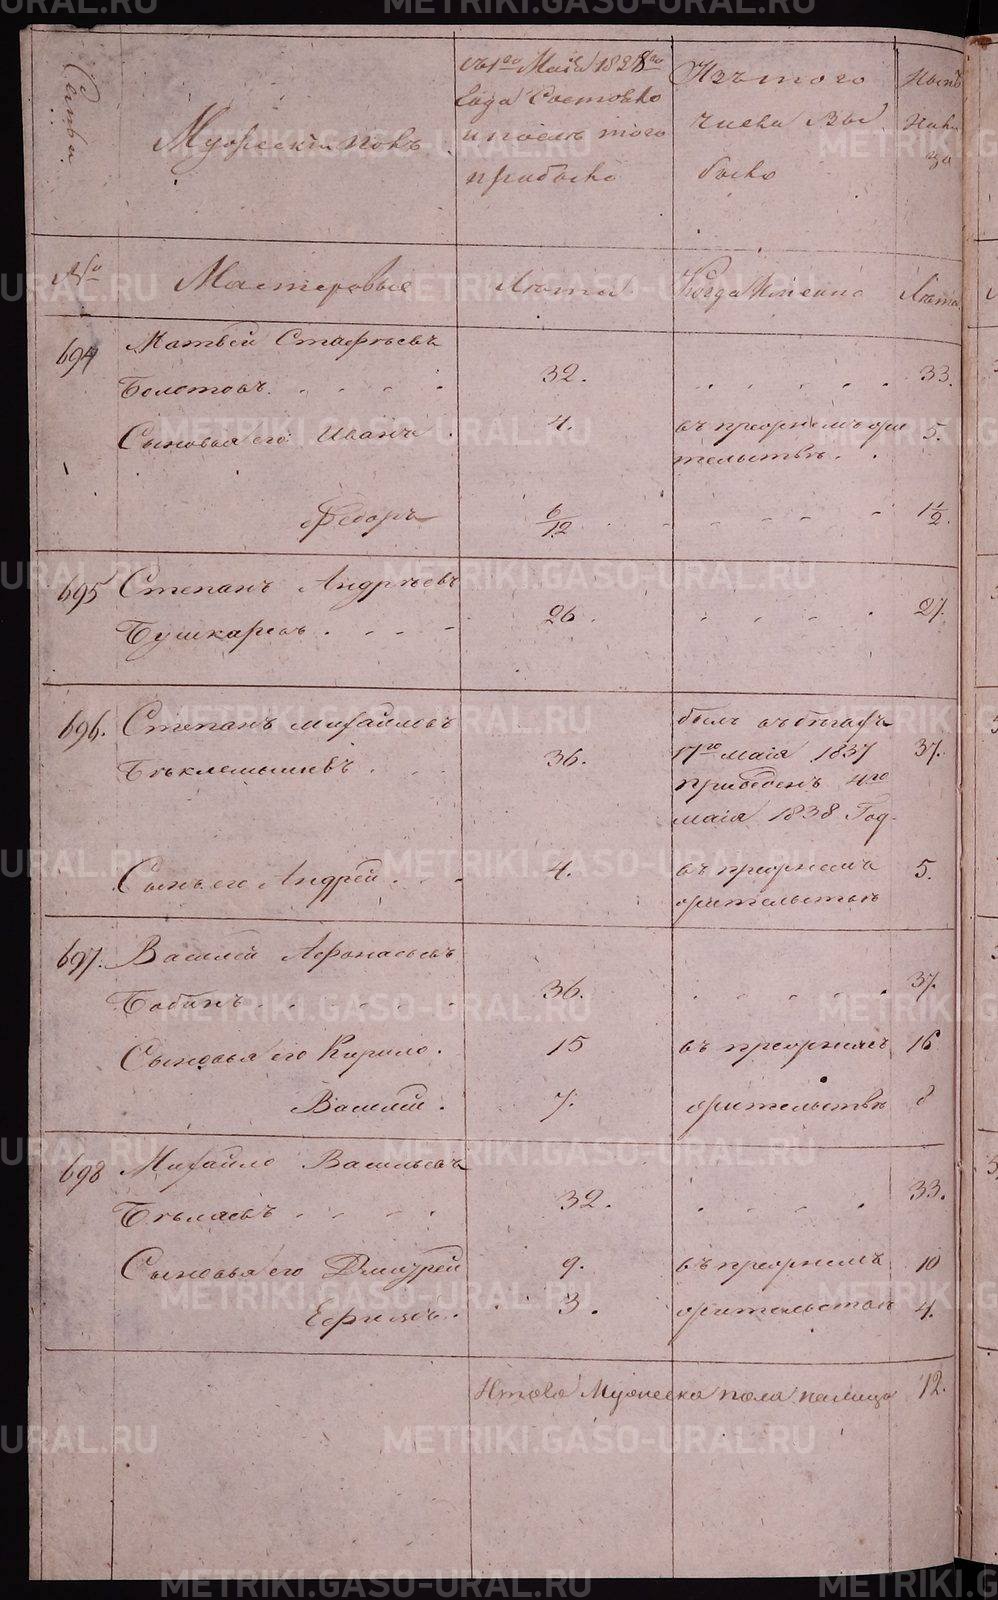 Семья
Мужескiй полъ
съ 1го Маiя 1838го
года Состояло
и после того
прибыло
Изъ того
числа Вы
было
Ныне
Нали
цо
№
Мастеровые
Лета
Когда Именно
Лета
694
Матвей Стафеевъ
Болотовъ. 32. 33.
Сыновья его Иванъ. 4. въ прежнемъ жи 5.
тельстве.
Федоръ 6/12 1 1/2.
695 Степанъ Андреевъ
Бушкаревъ. 26. 27.
696. Степанъ Михайловъ был въ бегахъ
Беклемышевъ. 36. 17го маiя 1837 37.
приведенъ 4го
маiя 1838 Год.
Сынъ его Андрей. 4. въ прежнемъ 5.
жительстве
697. Василей Афонасьевъ
Бабинъ. 36. 37.
Сыновья его Кирило. 15 въ прежнемъ 16
Василей. 7. жительстве 8
698 Михайло Васильевъ
Беляевъ 32. 33.
Сыновья его Дмитрей 9. въ прежнемъ 10
Ефимъ. 3. жительстве 4.
Итого Мужеска пола налицо 12.
METRIKI.GASO-URAL.RU